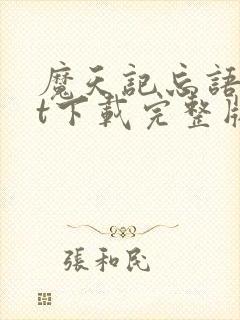 魔天記忘語
t下載完整版
張和民